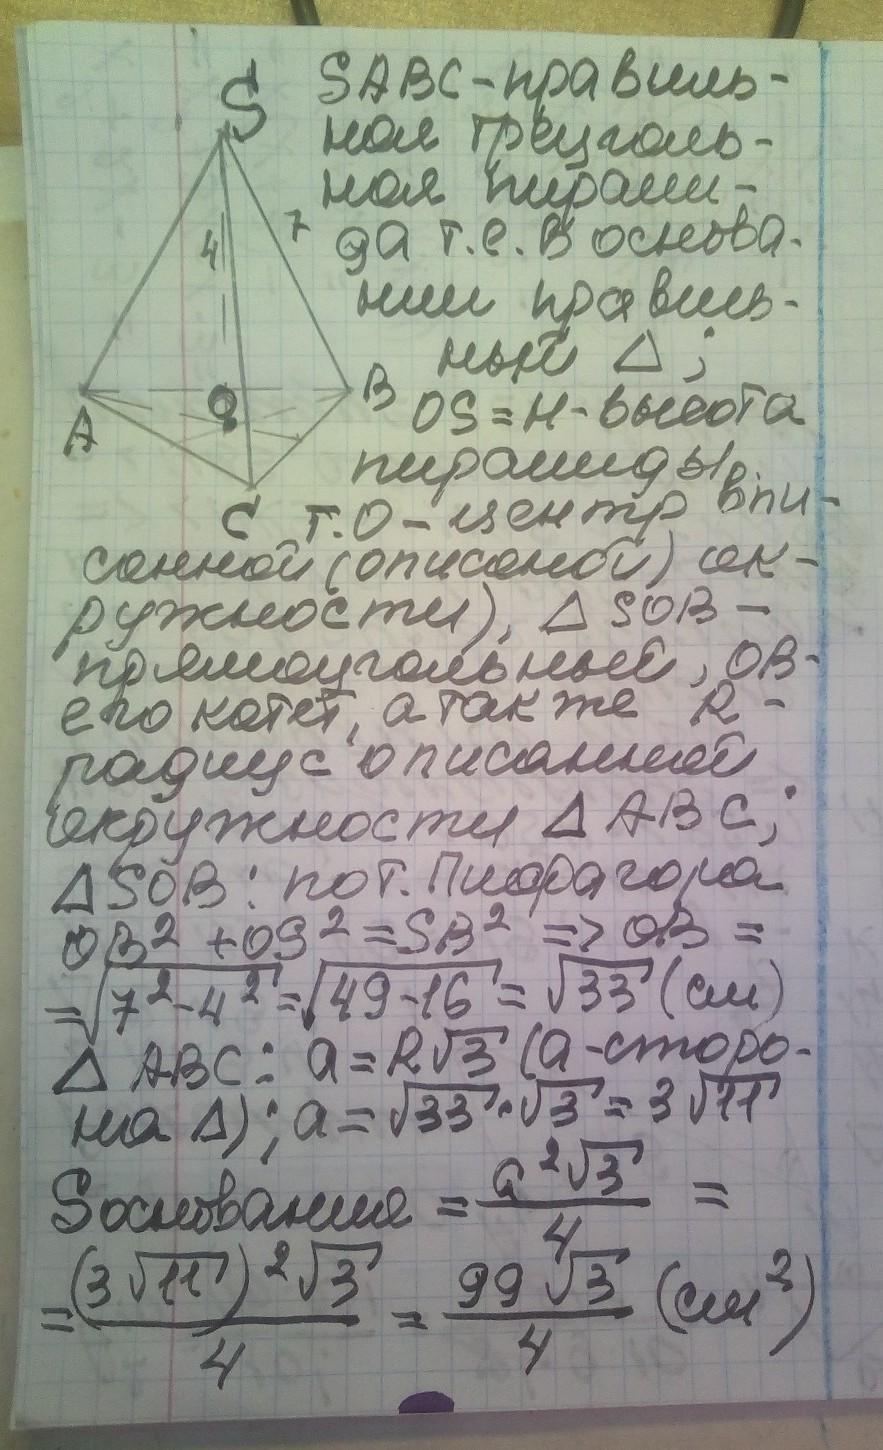 S
SABC-правиль-
ная треуголь-
ная пирами-
7
4
да т.е. в основа-
нии правиль-
ный Δ;
A
O
B
OS=H-высота
пирамиды
C
т.O-центр впи-
санной(описаной) ок-
ружности), Δ SOB-
прямоугольный, OB-
его катет, а также R-
радиус описанной
окружности Δ ABC;
Δ SOB: по т. Пифагора
OB² + OS² = SB² => OB =
= √(7² - 4²) = √(49-16) = √33 (см)
Δ ABC: a = R√3 (a-сторо-
на Δ); a = √33 · √3 = 3√11
Sоснования = a²√3/4 =
= (3√11)²√3/4 = 99√3/4 (см²)